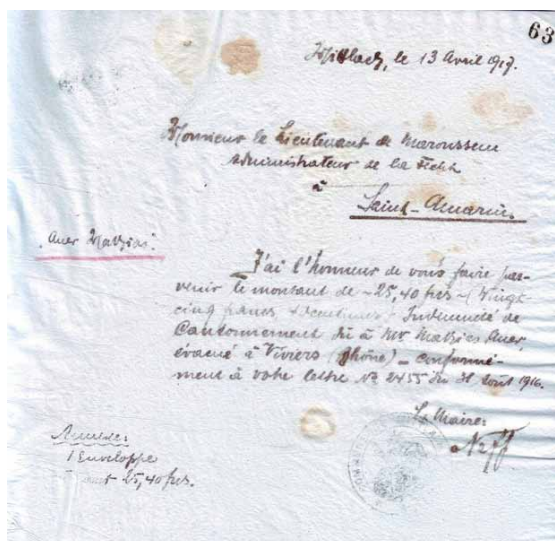 63
le 13 Avril 1917.
Monsieur le Lieutenant de Maroussem
Administrateur de la
à
Saint-Amarin
Auer Mathias.
J'ai l'honneur de vous faire par-
venir le montant de -25,40 frs- (Vingt-
cinq francs Indemnité de
Cantonnement dû à Mr Mathias Auer
évacué à Viviers (Rhône) - conformé-
ment à votre lettre № 2455 du 31 Août 1916.
Le Maire:
Neff
Annexe:
1 Enveloppe
25,40 frs.